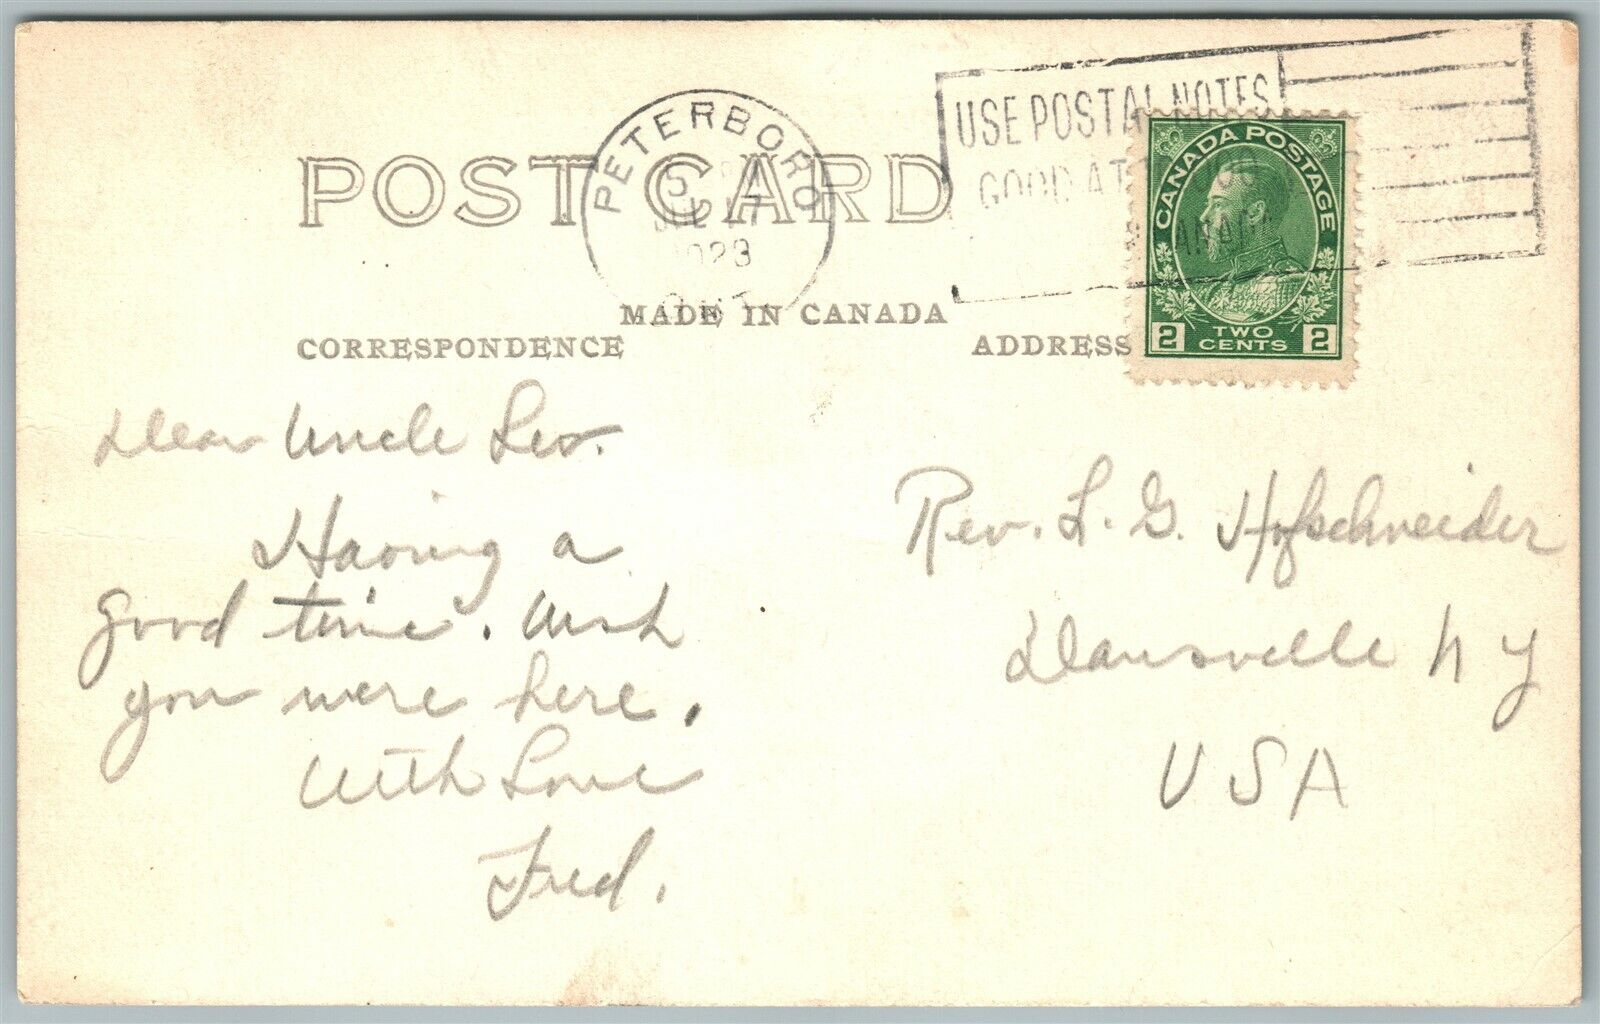 POST CARD
MADE IN CANADA
CORRESPONDENCE
ADDRESS
PETERBORO
JUL 17
1928
ONT
USE POSTAL NOTES
GOOD AT
CANADA POSTAGE
2 TWO CENTS 2
Dear Uncle Leo.
Having a
good time. Wish
you were here.
With Love
Fred.
Rev. L. G. Hofschneider
Dansville N Y
U S A